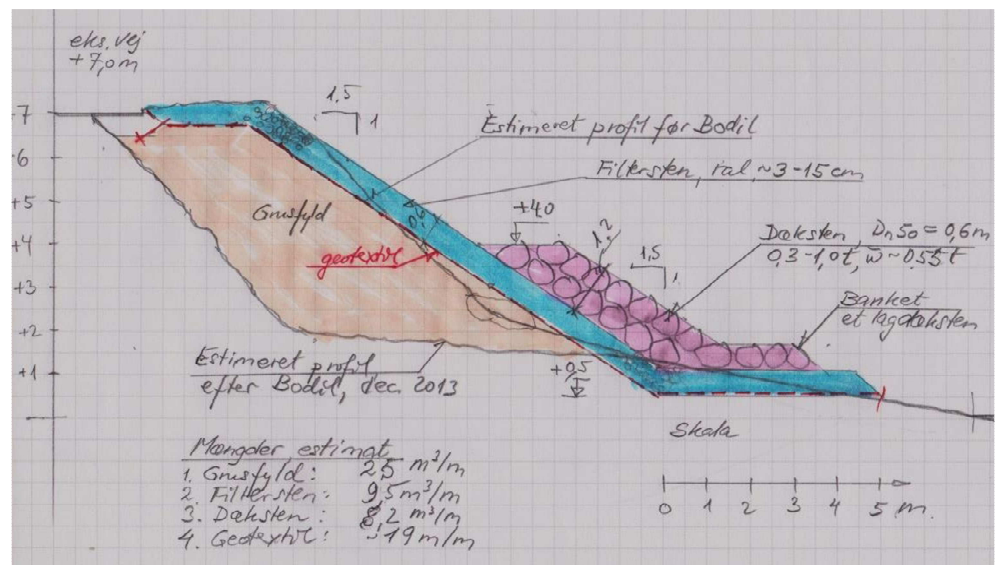 eks. vej
+7,0 m
1,5
1
Estimeret profil før Bodil
Filtersten, ral ~3-15 cm
+7
+6
+5
+4
+3
+2
+1
Grusfyld
0,6
geotextil
+4,0
1,2
1,5
1
Dæksten, Dn50 = 0,6 m
0,3-1,0t, w ~0,55t
Banket
et lag dæksten
Estimeret profil
efter Bodil, dec. 2013
+0,5
Skala
0 1 2 3 4 5 m.
Mængder, estimat
1. Grusfyld: 25 m³/m
2. Filtersten: 9,5 m³/m
3. Dæksten: 8,2 m³/m
4. Geotextil: 19 m/m